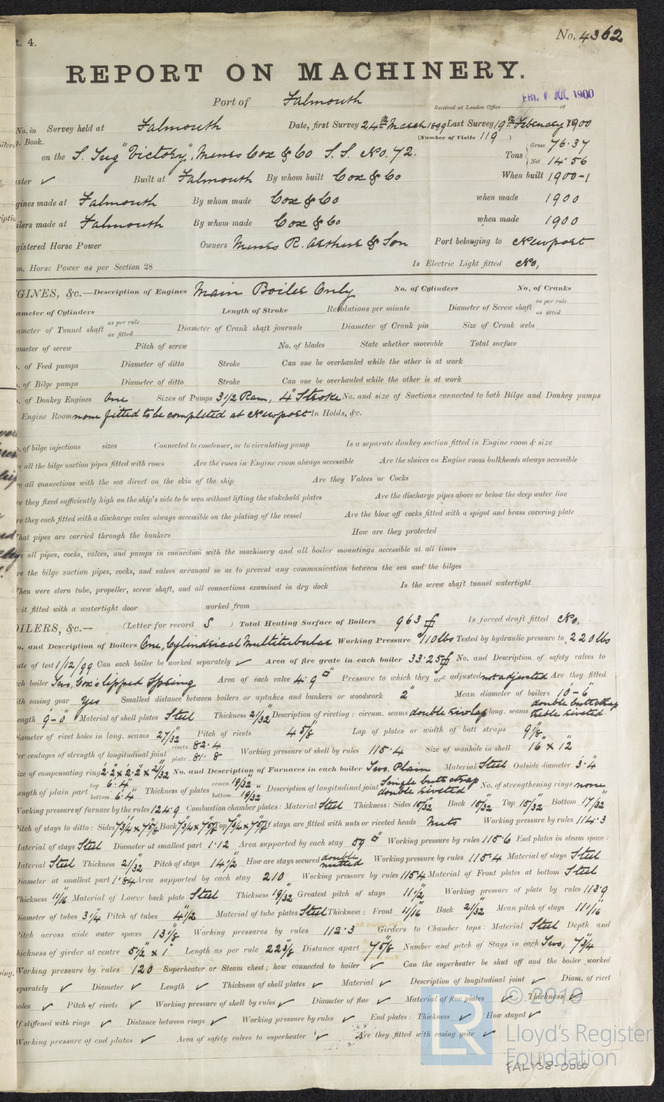 t. 4.
No. 4362
REPORT ON MACHINERY.
Port of Falmouth
Received at London Office
FRI. JUL 1900
No. in Survey held at Falmouth Date, first Survey 24th March 1899 Last Survey 19th February 1900
g. Book. (Number of Visits 119)
on the S. Tug "Victory", Messrs Cox & Co S.S. No. 72. Tons Gross 76.37 Net 14.56
ster ✓ Built at Falmouth By whom built Cox & Co When built 1900-1
gines made at Falmouth By whom made Cox & Co when made 1900
ilers made at Falmouth By whom made Cox & Co when made 1900
gistered Horse Power Owners Messrs R. Arthur & Son Port belonging to Newport
m. Horse Power as per Section 28 Is Electric Light fitted No,
GINES, &c.—Description of Engines Main Boiler Only No. of Cylinders No. of Cranks
ameter of Cylinders Length of Stroke Revolutions per minute Diameter of Screw shaft as per rule as fitted
ameter of Tunnel shaft as per rule as fitted Diameter of Crank shaft journals Diameter of Crank pin Size of Crank webs
ameter of screw Pitch of screw No. of blades State whether moveable Total surface
. of Feed pumps Diameter of ditto Stroke Can one be overhauled while the other is at work
. of Bilge pumps Diameter of ditto Stroke Can one be overhauled while the other is at work
. of Donkey Engines One Sizes of Pumps 3 1/2 Ram, 4" Stroke No. and size of Suctions connected to both Bilge and Donkey pumps
Engine Room none fitted to be completed at Newport In Holds, &c.
. of bilge injections sizes Connected to condenser, or to circulating pump Is a separate donkey suction fitted in Engine room & size
re all the bilge suction pipes fitted with roses Are the roses in Engine room always accessible Are the sluices on Engine room bulkheads always accessible
re all connections with the sea direct on the skin of the ship Are they Valves or Cocks
re they fixed sufficiently high on the ship's side to be seen without lifting the stokehold plates Are the discharge pipes above or below the deep water line
re they each fitted with a discharge valve always accessible on the plating of the vessel Are the blow off cocks fitted with a spigot and brass covering plate
hat pipes are carried through the bunkers How are they protected
re all pipes, cocks, valves, and pumps in connection with the machinery and all boiler mountings accessible at all times
re the bilge suction pipes, cocks, and valves arranged so as to prevent any communication between the sea and the bilges
hen were stern tube, propeller, screw shaft, and all connections examined in dry dock Is the screw shaft tunnel watertight
it fitted with a watertight door worked from
OILERS, &c.— (Letter for record S) Total Heating Surface of Boilers 963 Is forced draft fitted No.
o. and Description of Boilers One, Cylindrical Multitubular Working Pressure 110 lbs Tested by hydraulic pressure to 220 lbs
ate of test 1/12/99 Can each boiler be worked separately ✓ Area of fire grate in each boiler 33.25 No. and Description of safety valves to
ch boiler Two, Cox's lipped Spring Area of each valve 4.9 Pressure to which they are adjusted not adjusted Are they fitted
ith easing gear Yes Smallest distance between boilers or uptakes and bunkers or woodwork 2" Mean diameter of boilers 10-6"
ength 9-0" Material of shell plates Steel Thickness 21/32 Description of riveting: circum. seams double riv lap long. seams double butt strap treble riveted
iameter of rivet holes in long. seams 27/32 Pitch of rivets 4 5/8" Lap of plates or width of butt straps 9 1/8
er centages of strength of longitudinal joint rivets 82.4 plate 81.8 Working pressure of shell by rules 115.4 Size of manhole in shell 16" x 12"
ize of compensating ring No. and Description of Furnaces in each boiler Two, Plain Material Steel Outside diameter 3'.4"
ength of plain part top 6'.4" bottom 6'.4" Thickness of plates crown 19/32" bottom 19/32" Description of longitudinal joint single butt strap double riveted No. of strengthening rings none
Working pressure of furnace by the rules 124.9 Combustion chamber plates: Material Steel Thickness: Sides 15/32 Back 15/32 Top 15/32 Bottom 17/32
Pitch of stays to ditto: Sides Back Top If stays are fitted with nuts or riveted heads Nuts Working pressure by rules 114.3
aterial of stays Steel Diameter at smallest part 1.12 Area supported by each stay 59 Working pressure by rules 115.6 End plates in steam space:
aterial Steel Thickness 21/32 Pitch of stays 14 1/2 How are stays secured double nutted Working pressure by rules 115.4 Material of stays Steel
iameter at smallest part 1.84 Area supported by each stay 210 Working pressure by rules 115.4 Material of Front plates at bottom Steel
hickness 11/16 Material of Lower back plate Steel Thickness 19/32 Greatest pitch of stays 11 1/2 Working pressure of plate by rules 113.9
iameter of tubes 3 1/4 Pitch of tubes 4 1/2 Material of tube plates Steel Thickness: Front 11/16 Back 21/32 Mean pitch of stays 11 1/16
itch across wide water spaces 13 1/8 Working pressures by rules 112.3 Girders to Chamber tops: Material Steel Depth and
hickness of girder at centre 5 1/2" x 1" Length as per rule 22 3/8 Distance apart 7 5/8 Number and pitch of Stays in each Two, 7 3/4
Working pressure by rules 120 Superheater or Steam chest; how connected to boiler ✓ Can the superheater be shut off and the boiler worked
eparately ✓ Diameter ✓ Length ✓ Thickness of shell plates ✓ Material ✓ Description of longitudinal joint ✓ Diam. of rivet
holes ✓ Pitch of rivets ✓ Working pressure of shell by rules ✓ Diameter of flue ✓ Material of flue plates ✓ Thickness ✓
If stiffened with rings ✓ Distance between rings ✓ Working pressure by rules ✓ End plates: Thickness ✓ How stayed ✓
Working pressure of end plates ✓ Area of safety valves to superheater ✓ Are they fitted with easing gear ✓
© 2019
LR
Lloyd's Register
Foundation
FAL/38-0066